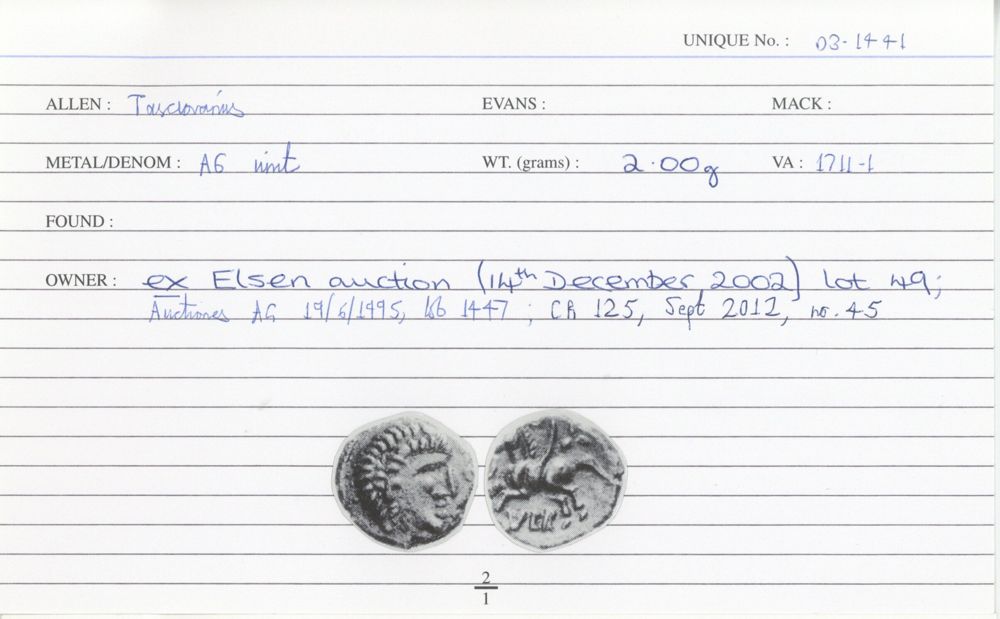 UNIQUE No. : 03-1441
ALLEN : Tasciovanus EVANS : MACK :
METAL/DENOM : AG unit WT. (grams) : 2.00g VA : 1711-1
FOUND :
OWNER : ex Elsen auction (14th December, 2002) lot 49;
Auctiones AG 19/6/1995, lot 1447 ; CR 125, Sept 2012, no. 45
2
1